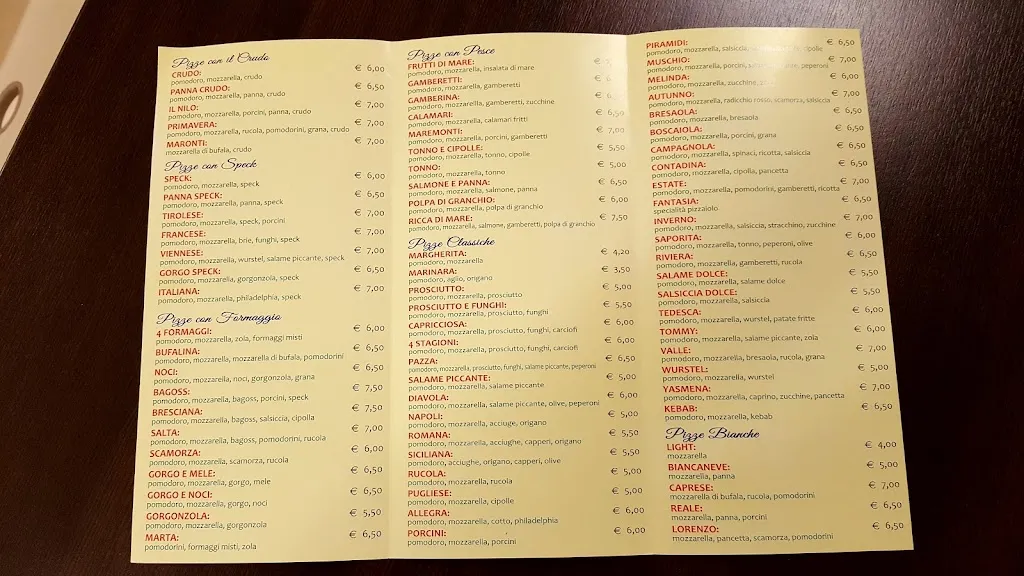 Pizze con il Crudo
CRUDO: € 6,00
pomodoro, mozzarella, crudo
PANNA CRUDO: € 6,50
pomodoro, mozzarella, panna, crudo
IL NILO: € 7,00
pomodoro, mozzarella, porcini, panna, crudo
PRIMAVERA: € 7,00
pomodoro, mozzarella, rucola, pomodorini, grana, crudo
MARONTI: € 7,00
mozzarella di bufala, crudo
Pizze con Speck
SPECK: € 6,00
pomodoro, mozzarella, speck
PANNA SPECK: € 6,50
pomodoro, mozzarella, panna, speck
TIROLESE: € 7,00
pomodoro, mozzarella, speck, porcini
FRANCESE: € 7,00
pomodoro, mozzarella, brie, funghi, speck
VIENNESE: € 7,00
pomodoro, mozzarella, wurstel, salame piccante, speck
GORGO SPECK: € 6,50
pomodoro, mozzarella, gorgonzola, speck
ITALIANA: € 7,00
pomodoro, mozzarella, philadelphia, speck
Pizze con Formaggio
4 FORMAGGI: € 6,00
pomodoro, mozzarella, zola, formaggi misti
BUFALINA: € 6,50
pomodoro, mozzarella, mozzarella di bufala, pomodorini
NOCI: € 6,50
pomodoro, mozzarella, noci, gorgonzola, grana
BAGOSS: € 7,50
pomodoro, mozzarella, bagoss, porcini, speck
BRESCIANA: € 7,50
pomodoro, mozzarella, bagoss, salsiccia, cipolla
SALTA: € 7,00
pomodoro, mozzarella, bagoss, pomodorini, rucola
SCAMORZA: € 6,00
pomodoro, mozzarella, scamorza, rucola
GORGO E MELE: € 6,50
pomodoro, mozzarella, gorgo, mele
GORGO E NOCI: € 6,50
pomodoro, mozzarella, gorgo, noci
GORGONZOLA: € 5,50
pomodoro, mozzarella, gorgonzola
MARTA: € 6,50
pomodorini, formaggi misti, zola
Pizze con Pesce
FRUTTI DI MARE: €
pomodoro, mozzarella, insalata di mare
GAMBERETTI: €
pomodoro, mozzarella, gamberetti
GAMBERINA: €
pomodoro, mozzarella, gamberetti, zucchine
CALAMARI: € 6,50
pomodoro, mozzarella, calamari fritti
MAREMONTI: € 7,00
pomodoro, mozzarella, porcini, gamberetti
TONNO E CIPOLLE: € 5,50
pomodoro, mozzarella, tonno, cipolle
TONNO: € 5,00
pomodoro, mozzarella, tonno
SALMONE E PANNA: € 6,50
pomodoro, mozzarella, salmone, panna
POLPA DI GRANCHIO: € 6,00
pomodoro, mozzarella, polpa di granchio
RICCA DI MARE: € 7,50
pomodoro, mozzarella, salmone, gamberetti, polpa di granchio
Pizze Classiche
MARGHERITA: € 4,20
pomodoro, mozzarella
MARINARA: € 3,50
pomodoro, aglio, origano
PROSCIUTTO: € 5,00
pomodoro, mozzarella, prosciutto
PROSCIUTTO E FUNGHI: € 5,50
pomodoro, mozzarella, prosciutto, funghi
CAPRICCIOSA: € 6,00
pomodoro, mozzarella, prosciutto, funghi, carciofi
4 STAGIONI: € 6,00
pomodoro, mozzarella, prosciutto, funghi, carciofi
PAZZA: € 6,50
pomodoro, mozzarella, prosciutto, funghi, salame piccante, peperoni
SALAME PICCANTE: € 5,00
pomodoro, mozzarella, salame piccante
DIAVOLA: € 6,00
pomodoro, mozzarella, salame piccante, olive, peperoni
NAPOLI: € 5,00
pomodoro, mozzarella, acciuge, origano
ROMANA: € 5,50
pomodoro, mozzarella, acciughe, capperi, origano
SICILIANA: € 5,50
pomodoro, acciughe, origano, capperi, olive
RUCOLA: € 5,00
pomodoro, mozzarella, rucola
PUGLIESE: € 5,00
pomodoro, mozzarella, cipolle
ALLEGRA: € 6,00
pomodoro, mozzarella, cotto, philadelphia
PORCINI: € 6,00
pomodoro, mozzarella, porcini
PIRAMIDI: € 6,50
pomodoro, mozzarella, salsiccia, cipolle
MUSCHIO: € 7,00
pomodoro, mozzarella, porcini, peperoni
MELINDA: € 6,00
pomodoro, mozzarella, zucchine,
AUTUNNO: € 7,00
pomodoro, mozzarella, radicchio rosso, scamorza, salsiccia
BRESAOLA: € 6,50
pomodoro, mozzarella, bresaola
BOSCAIOLA: € 6,50
pomodoro, mozzarella, porcini, grana
CAMPAGNOLA: € 6,50
pomodoro, mozzarella, spinaci, ricotta, salsiccia
CONTADINA: € 6,50
pomodoro, mozzarella, cipolla, pancetta
ESTATE: € 7,00
pomodoro, mozzarella, pomodorini, gamberetti, ricotta
FANTASIA: € 6,50
specialità pizzaiolo
INVERNO: € 7,00
pomodoro, mozzarella, salsiccia, stracchino, zucchine
SAPORITA: € 6,50
pomodoro, mozzarella, tonno, peperoni, olive
RIVIERA: € 6,50
pomodoro, mozzarella, gamberetti, rucola
SALAME DOLCE: € 5,50
pomodoro, mozzarella, salame dolce
SALSICCIA DOLCE: € 5,50
pomodoro, mozzarella, salsiccia
TEDESCA: € 6,00
pomodoro, mozzarella, wurstel, patate fritte
TOMMY: € 6,00
pomodoro, mozzarella, salame piccante, zola
VALLE: € 7,00
pomodoro, mozzarella, bresaola, rucola, grana
WURSTEL: € 5,00
pomodoro, mozzarella, wurstel
YASMENA: € 7,00
pomodoro, mozzarella, caprino, zucchine, pancetta
KEBAB: € 6,50
pomodoro, mozzarella, kebab
Pizze Bianche
LIGHT: € 4,00
mozzarella
BIANCANEVE: € 5,00
mozzarella, panna
CAPRESE: € 7,00
mozzarella di bufala, rucola, pomodorini
REALE: € 6,50
mozzarella, panna, porcini
LORENZO: € 6,50
mozzarella, pancetta, scamorza, pomodorini